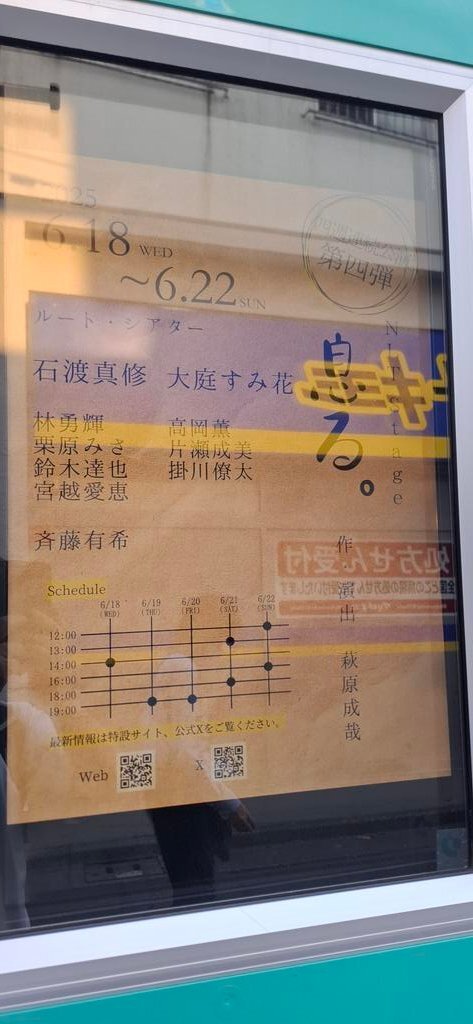 2025
6.18 WED
～6.22 SUN
第四弾
ルート・シアター
石渡真修 大庭すみ花
林勇輝 高岡薫
栗原みさ 片瀬成美
鈴木達也 掛川僚太
宮越愛恵
斉藤有希
る。
作・演出 萩原成哉
処方せん受付
Schedule
6/18 6/19 6/20 6/21 6/22
(WED) (THU) (FRI) (SAT) (SUN)
12:00
13:00
14:00
16:00
18:00
19:00
最新情報は特設サイト、公式Xをご覧ください。
Web X